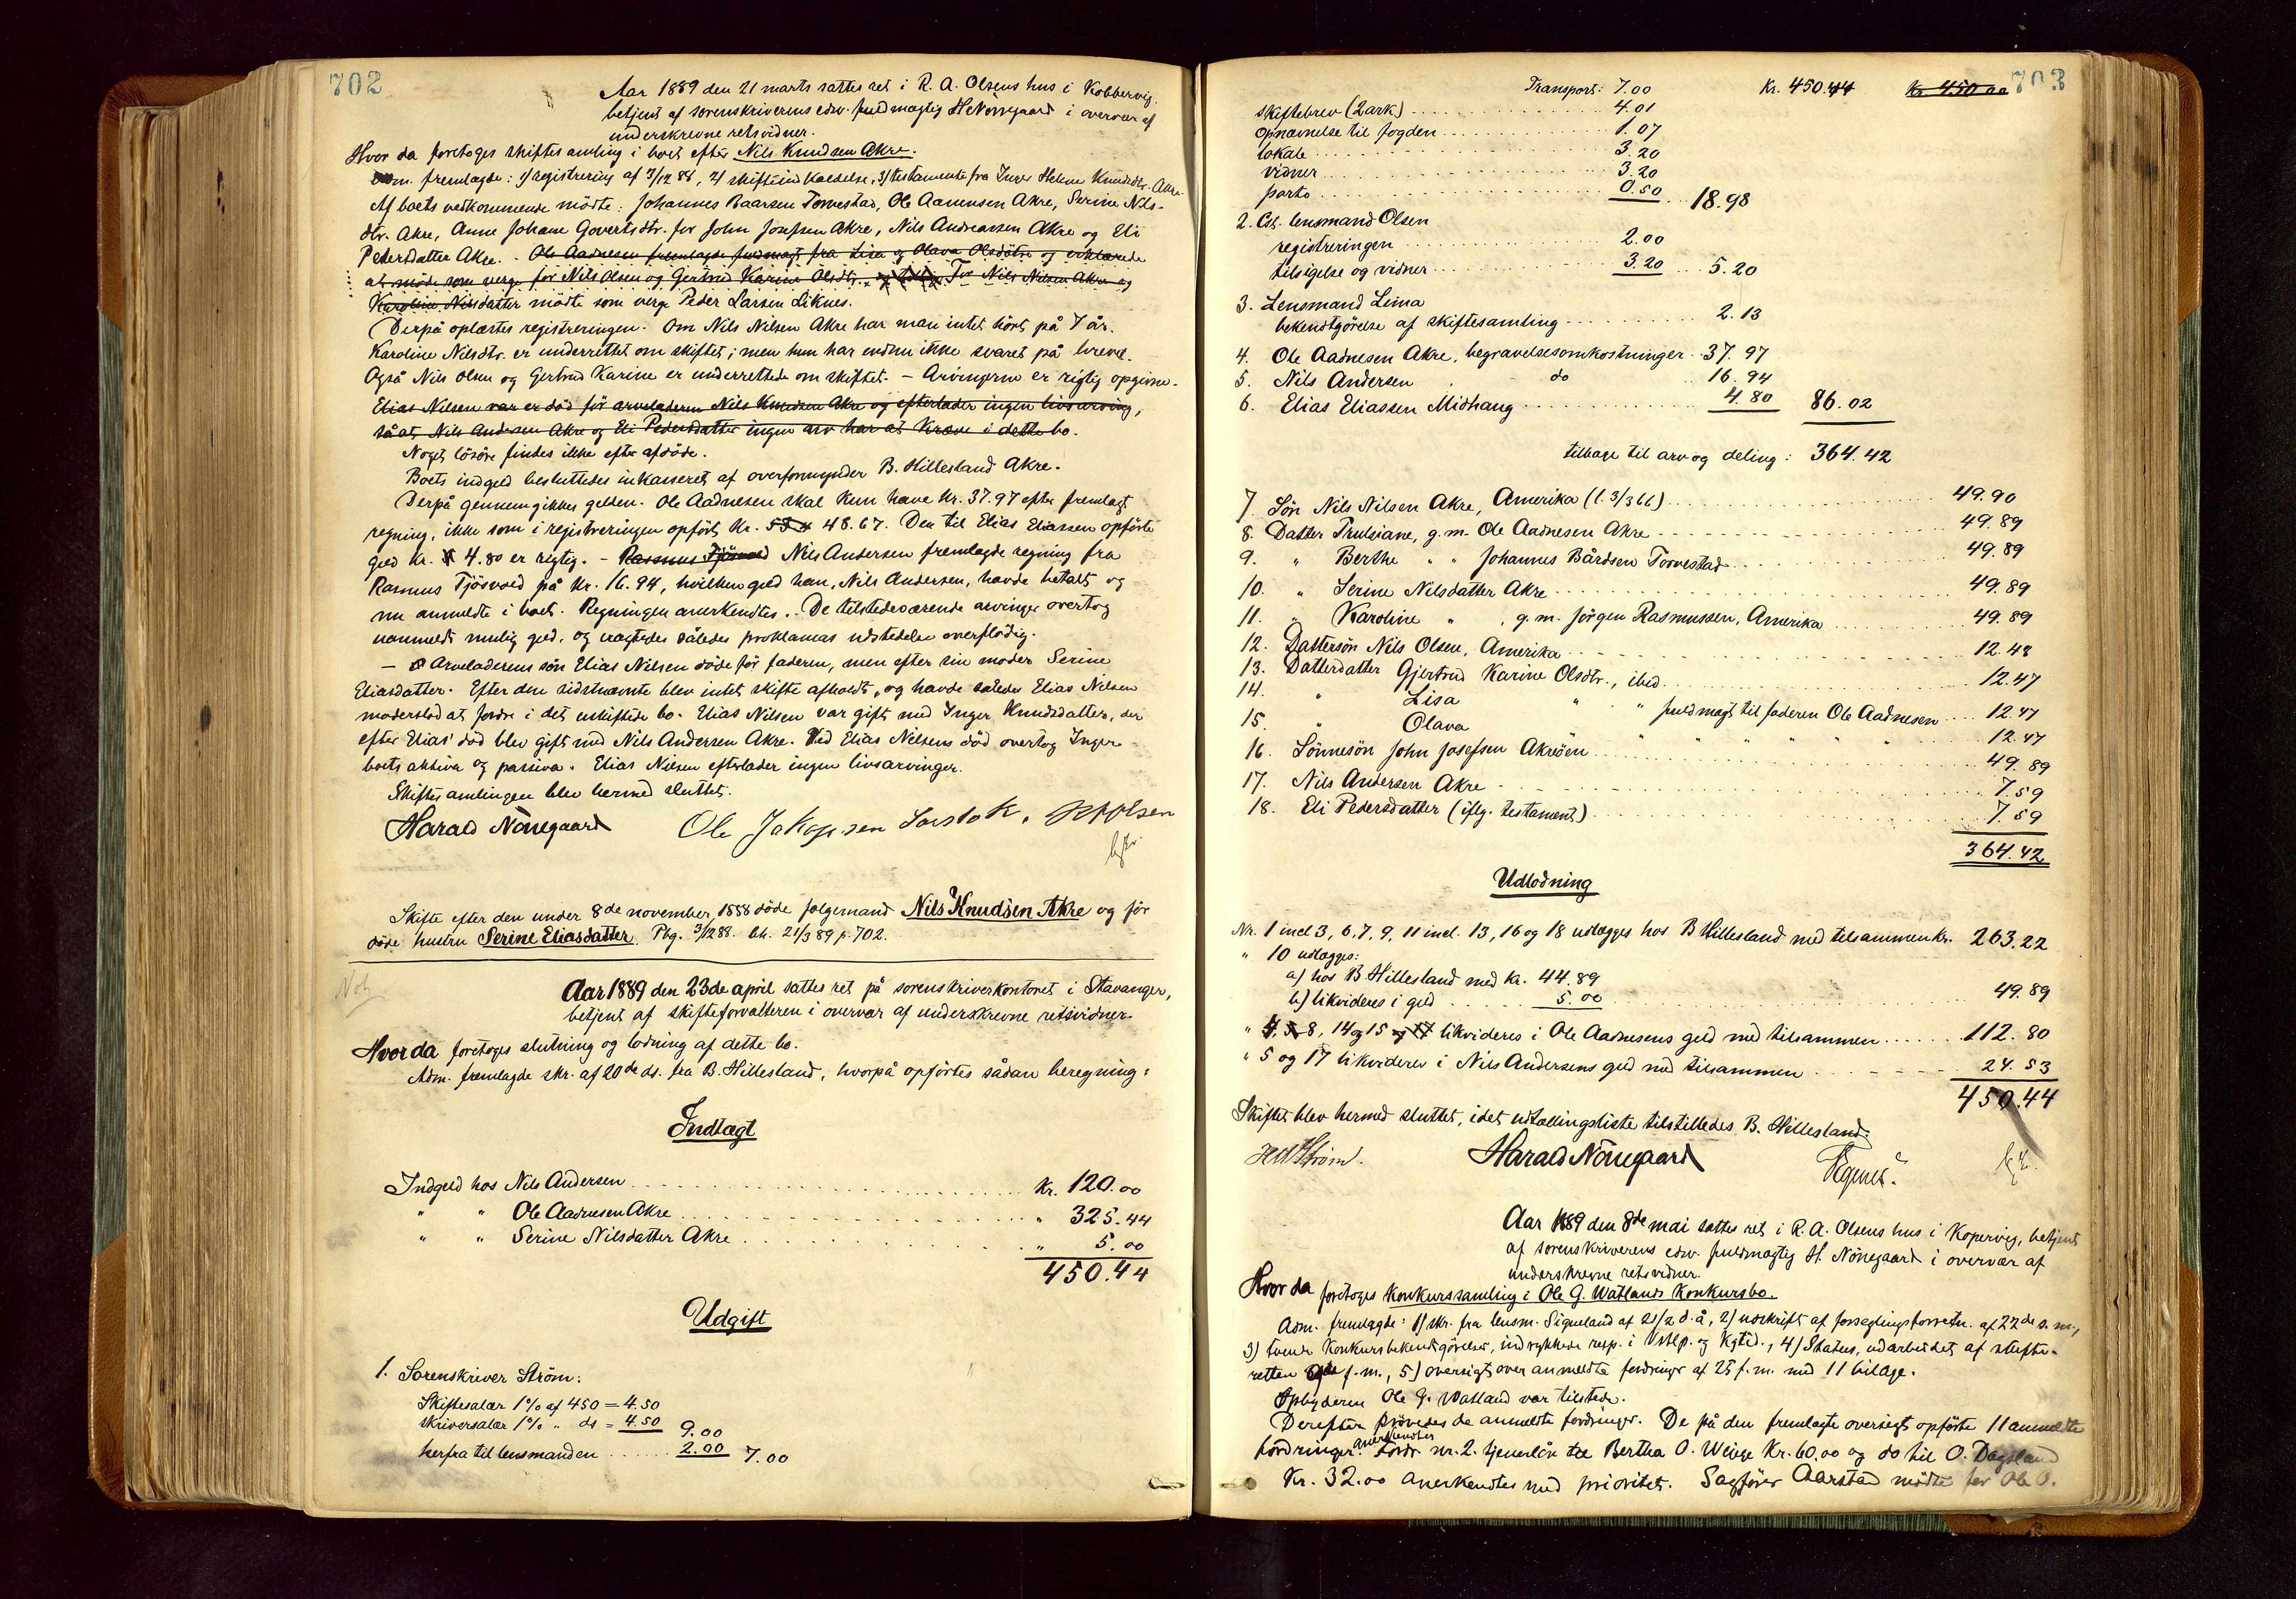 702
Aar 1889 den 21 marts sattes ret i R. A. Olsens hus i Kobbervig,
betjent af sorenskriverens edsv. fuldmægtig H. Nörregaard i overvær af
underskrevne retsvidner.
Hvor da foretoges skiftesamling i boet efter Nils Knudsen Akre.
Adm. fremlagde: 1) registrering af 3/12 88, 2) skifteindkaldelse, 3) testamente fra Inger Helene Knudsdtr. Akre.
Af boets vedkommende mödte: Johannes Baarsen Torvestad, Ole Aanensen Akre, Serine Nils-
dtr. Akre, Anne Johane Govertsdtr. for John Josefsen Akre, Nils Andreassen Akre og Eli
Pedersdatter Akre. - Ole Aadnesen fremlagde fuldmagt fra Lisa og Olava Olsdötre og erklærede
at möde som verge for Nils Olsen og Gertrud Karine Olsdtr. For Nils Nilsen Akre og
Karoline Nilsdatter mödte som verge Peder Larsen Liknes.
Derpå oplæstes registreringen. Om Nils Nilsen Akre har man intet hört på 7 år.
Karoline Nilsdtr. er underrettet om skiftet; men hun har endnu ikke svaret på brevet.
Også Nils Olsen og Gertrud Karine er underrettede om skiftet. - Arvingerne er rigtig opgivne.
Elias Nilsen var er död för arveladeren Nils Knudsen Akre og efterlader ingen livsarving,
så at Nils Andersen Akre og Eli Pedersdatter ingen arv har at kræve i dette bo.
Noget lösöre findes ikke efter afdöde.
Boets indgeld besluttedes inkasseret af overformynder B. Hillesland Akre.
Derpå gennemgikkes gelden. Ole Aadnesen skal kun have kr. 37.97 efter fremlagt
regning, ikke som i registreringen opfört kr. 48.67. Den til Elias Eliassen opförte
geld kr. 4.80 er rigtig. - Rasmus Tjösvold Nils Andersen fremlagde regning fra
Rasmus Tjösvold på kr. 16.94, hvilken geld han, Nils Andersen, havde betalt og
nu anmeldte i boet. Regningen anerkendtes. De tilstedeværende arvinger overtog
uanmeldt mulig geld, og eragtedes således proklamas udstedelse overflödig.
- Arveladerens sön Elias Nilsen döde för faderen, men efter sin moder Serine
Eliasdatter. Efter den sidstnævnte blev intet skifte afholdt, og havde således Elias Nilsen
moderslod at fordre i det uskiftede bo. Elias Nilsen var gift med Inger Knudsdatter, der
efter Elias' död blev gift med Nils Andersen Akre. Ved Elias Nilsens död overtog Inger
boets aktiva og passiva. Elias Nilsen efterlader ingen livsarvinger.
Skiftesamlingen blev hermed sluttet.
Harald Nörregaard Ole Jakopsen
Skifte efter den under 8de november 1888 döde folgemand Nils Knudsen Akre og för
döde hustru Serine Eliasdatter. Phg. 3/12 88. bh. 21/3 89 p. 702.
Not.
Aar 1889 den 23de april sattes ret på sorenskriverkontoret i Stavanger,
betjent af skifteforvalteren i overvær af underskrevne retsvidner.
Hvor da foretoges slutning og lodning af dette bo.
Adm. fremlagde skr. af 20de ds. fra B. Hillesland, hvorpå opförtes sådan beregning:
Indtægt
Indgeld hos Nils Andersen kr. 120.00
" " Ole Aadnesen Akre " 325.44
" " Serine Nilsdatter Akre " 5.00
450.44
Udgift
1. Sorenskriver Ström:
Skiftesalær 1% af 450 = 4.50
skriversalær 1% " ds = 4.50 9.00
herfra til lensmanden 2.00 7.00
703
Transport: 7.00 Kr. 450.44 Kr. 450 00
skiftebrev (2 ark) 4.01
opnævnelse til fogden 1.07
lokale 3.20
vidner 3.20
porto 0.50 18.98
2. Cst. lensmand Olsen
registreringen 2.00
tilsigelse og vidner 3.20 5.20
3. Lensmand Lima
bekendtgörelse af skiftesamling 2.13
4. Ole Aadnesen Akre, begravelsesomkostninger 37.97
5. Nils Andersen do 16.94
6. Elias Eliassen Midhaug 4.80 86.02
tilbage til arv og deling: 364.42
7. Sön Nils Nilsen Akre, Amerika (f. 3/3 66) 49.90
8. Datter Trulsiane, g. m. Ole Aadnesen Akre 49.89
9. " Berthe " " Johannes Bårdsen Torvestad 49.89
10. " Serine Nilsdatter Akre 49.89
11. " Karoline " , g. m. Jörgen Rasmussen, Amerika 49.89
12. Dattersön Nils Olsen, Amerika 12.48
13. Datterdatter Gjertrud Karine Olsdtr., ibid. 12.47
14. " Lisa " " fuldmagt til faderen Ole Aadnesen 12.47
15. " Olava " " " " " " 12.47
16. Sönnesön John Josefsen Akreöen 49.89
17. Nils Andersen Akre 7.59
18. Eli Pedersdatter (iflg. testament) 7.59
364.42
Udlodning
Nr. 1 incl 3, 6, 7, 9, 11 incl. 13, 16 og 18 udlægges hos B Hillesland med tilsammen kr. 263.22
" 10 udlægges:
a) hos B Hillesland med kr. 44.89
b) likvideres i geld 5.00 49.89
" 4. 8, 14 og 15 likvideres i Ole Aadnesens geld med tilsammen 112.80
" 5 og 17 likvideres i Nils Andersens geld med tilsammen 24.53
450.44
Skiftet blev hermed sluttet, idet udtællingsliste tilstilledes B. Hillesland.
Ström. Harald Nörregaard
Aar 1889 den 8de mai sattes ret i R. A. Olsens hus i Kopervig, betjent
af sorenskriverens edsv. fuldmægtig H. Nörregaard i overvær af
underskrevne retsvidner.
Hvor da foretoges konkurssamling i Ole G. Watlands konkursbo.
Adm. fremlagde: 1) skr. fra lensm. Siqueland af 21/2 d. å, 2) udskrift af forseglingsforretn. af 22de s. m.,
3) tvende konkursbekendtgörelser, indrykkede resp. i Vstlp. og Kgtid., 4) Status, udarbeidet af skifte-
retten f. m., 5) oversigt over anmeldte fordringer af 25 f. m. med 11 bilage.
Opbyderen Ole G. Watland var tilstede.
Derefter prövedes de anmeldte fordringer. De på den fremlagte oversigt opförte 11 anmeldte
fordringer anerkendtes. Fordr. nr. 2. tjenerlön til Bertha O. Weige Kr. 60.00 og do til O. Dagsland
Kr. 32.00 anerkendtes med prioritet. Sagförer Aarstad mödte for Ole O.